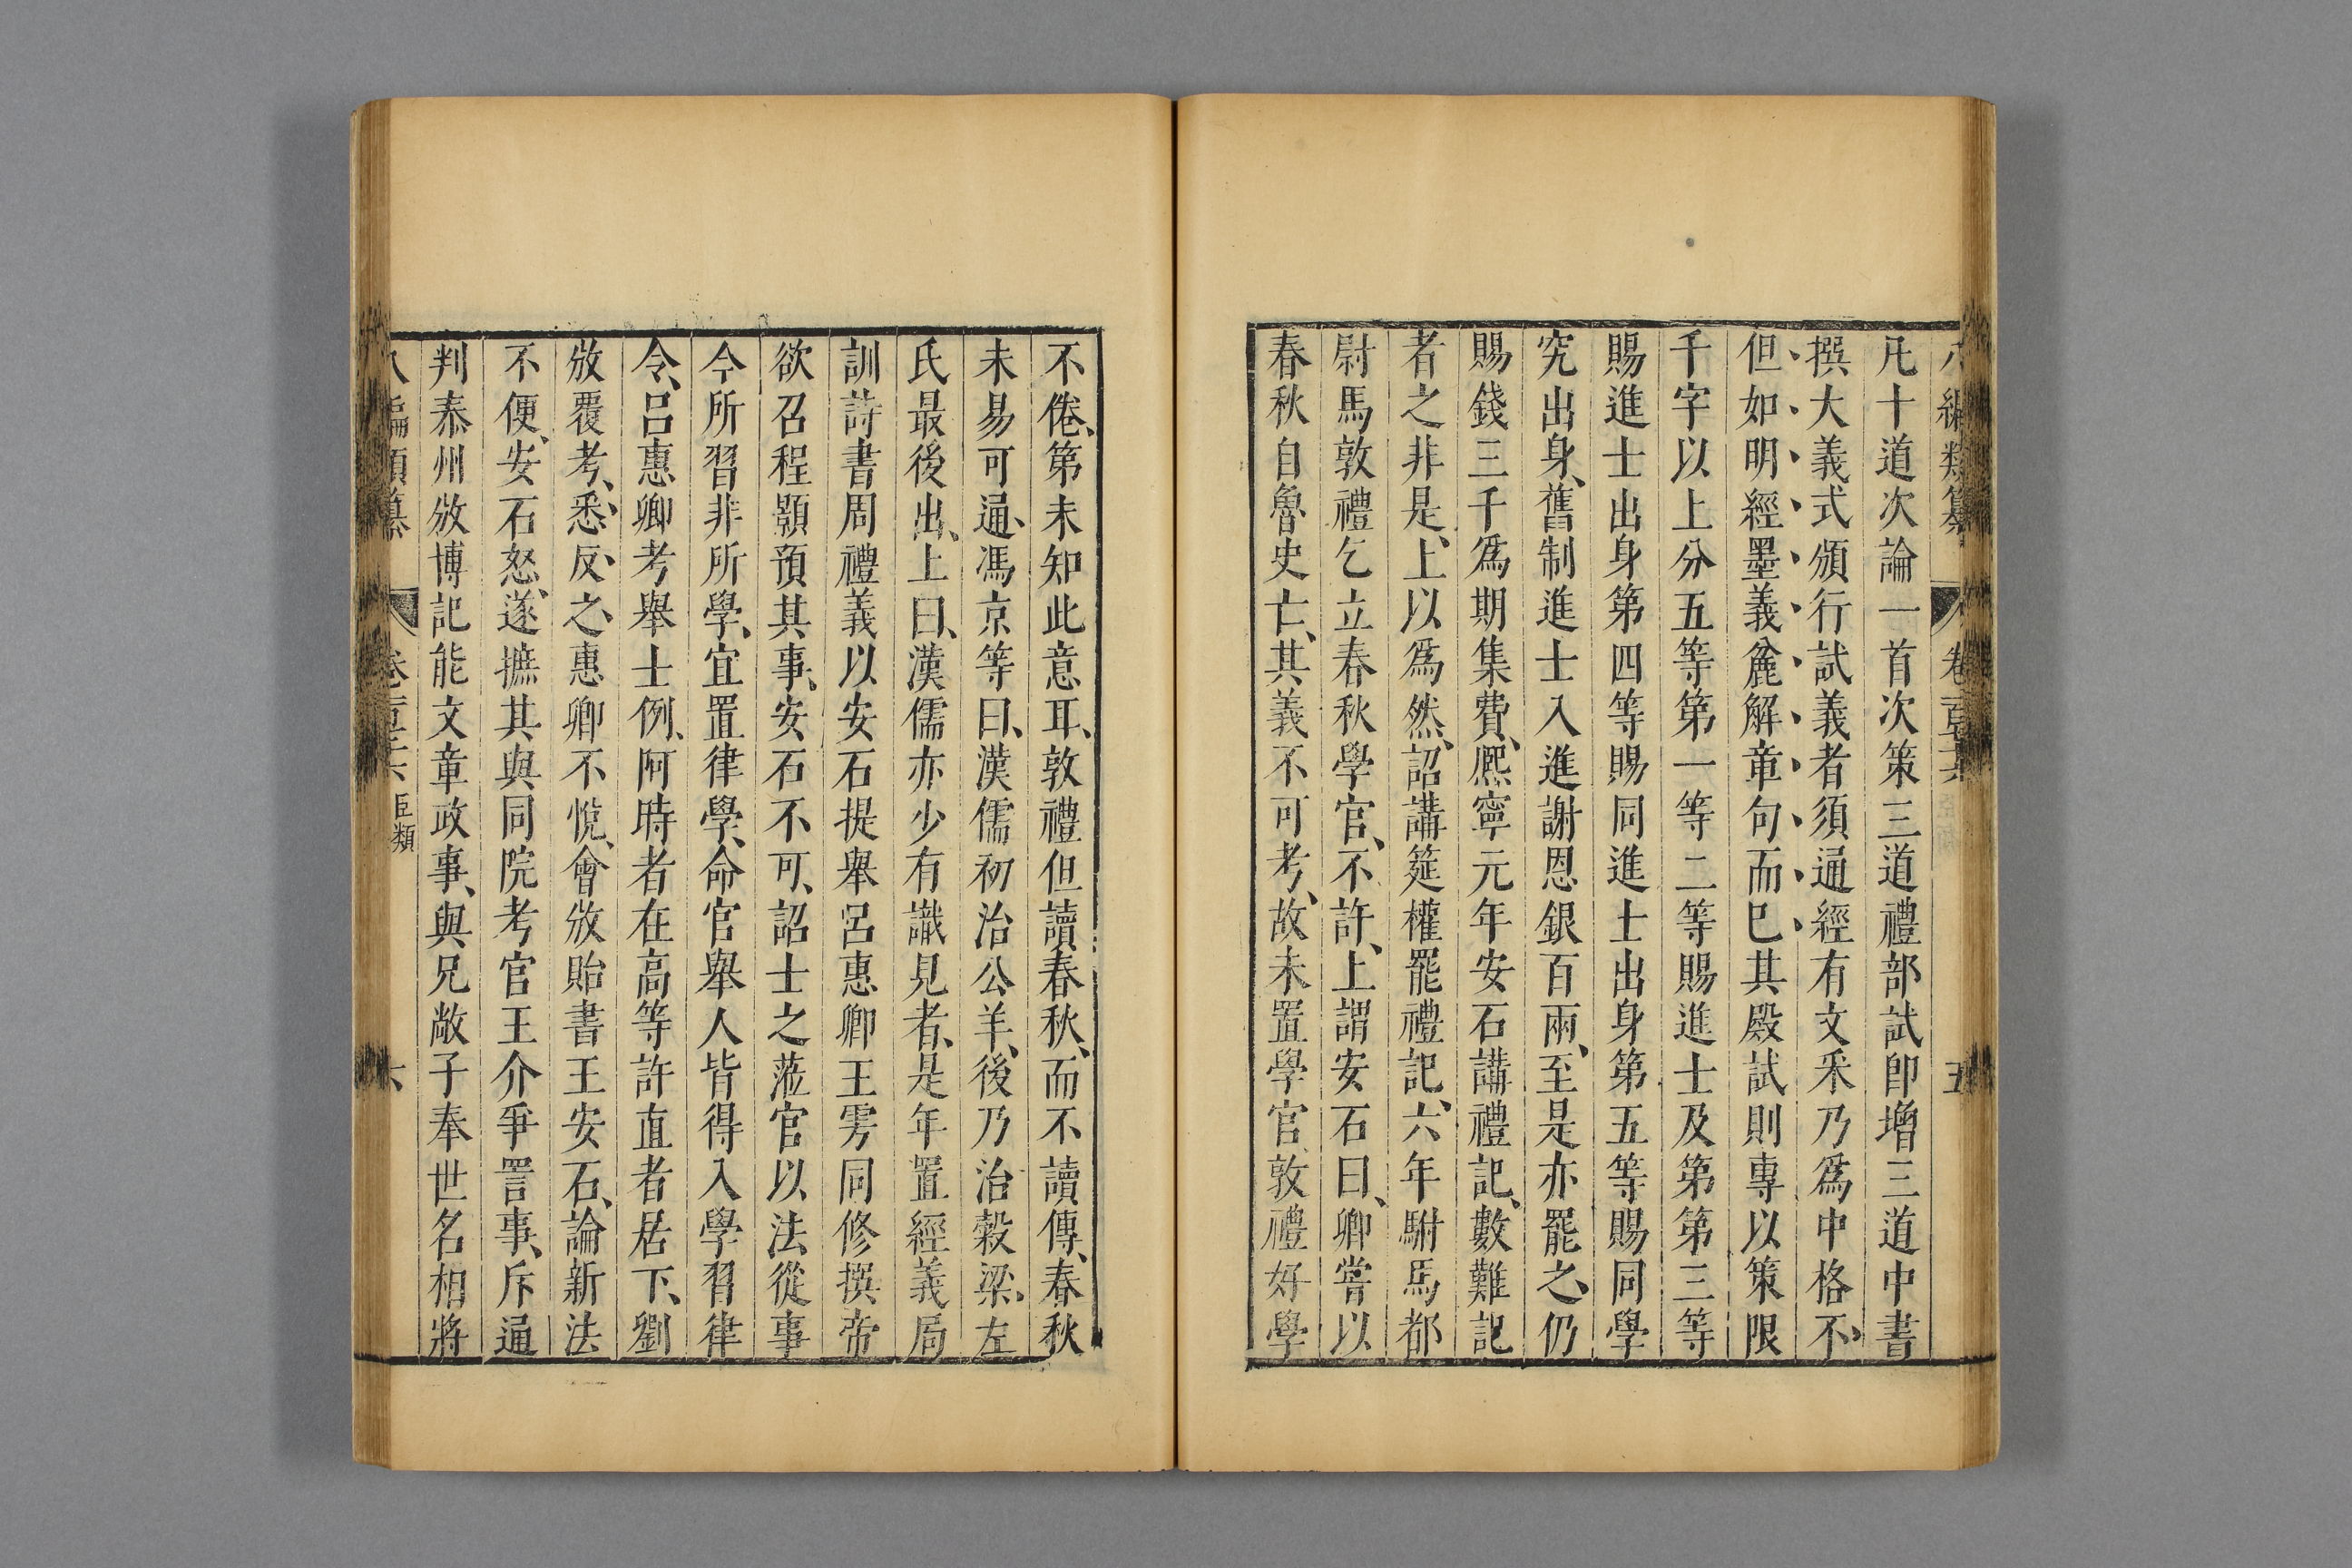 八編類纂 卷一百六 五
凡十道次論一首次策三道禮部試卽增三道中書
撰大義式頒行試義者須通經有文釆乃爲中格不、
但、如、明、經、墨、義、麄、解、章、句、而、巳、其殿試則專以策限
千字以上分五等第一等二等賜進士及第第三等
賜進士出身第四等賜同進士出身第五等賜同學
究出身、舊制進士入進謝恩銀百兩、至是亦罷之、仍
賜錢三千爲期集費、熈寧元年安石講禮記、數難記
者之非是、上以爲然、詔講筵權罷禮記、六年駙馬都
尉馬敦禮乞立春秋學官、不許、上謂安石曰、卿嘗以
春秋自魯史亡、其義不可考、故未置學官、敦禮好學
不倦、第未知此意耳、敦禮但讀春秋、而不讀傳、春秋
未易可通、馮京等曰、漢儒初治公羊、後乃治穀梁、左
氏最後出、上曰、漢儒亦少有識見者、是年置經義局
訓詩書周禮義以安石提舉呂惠卿王雱同修撰帝
欲召程顥預其事、安石不可、詔士之蒞官以法從事
今所習非所學、宜置律學、命官舉人皆得入學習律
令、呂惠卿考舉士例、阿時者在高等訐直者居下、劉
攽覆考、悉、反、之、惠卿不悅、會攽貽書王安石、論新法
不便、安石怒、遂摭其與同院考官王介爭詈事、斥通
判泰州攽博記能文章政事、與兄敞子奉世名相將
八編類纂 臣類 六